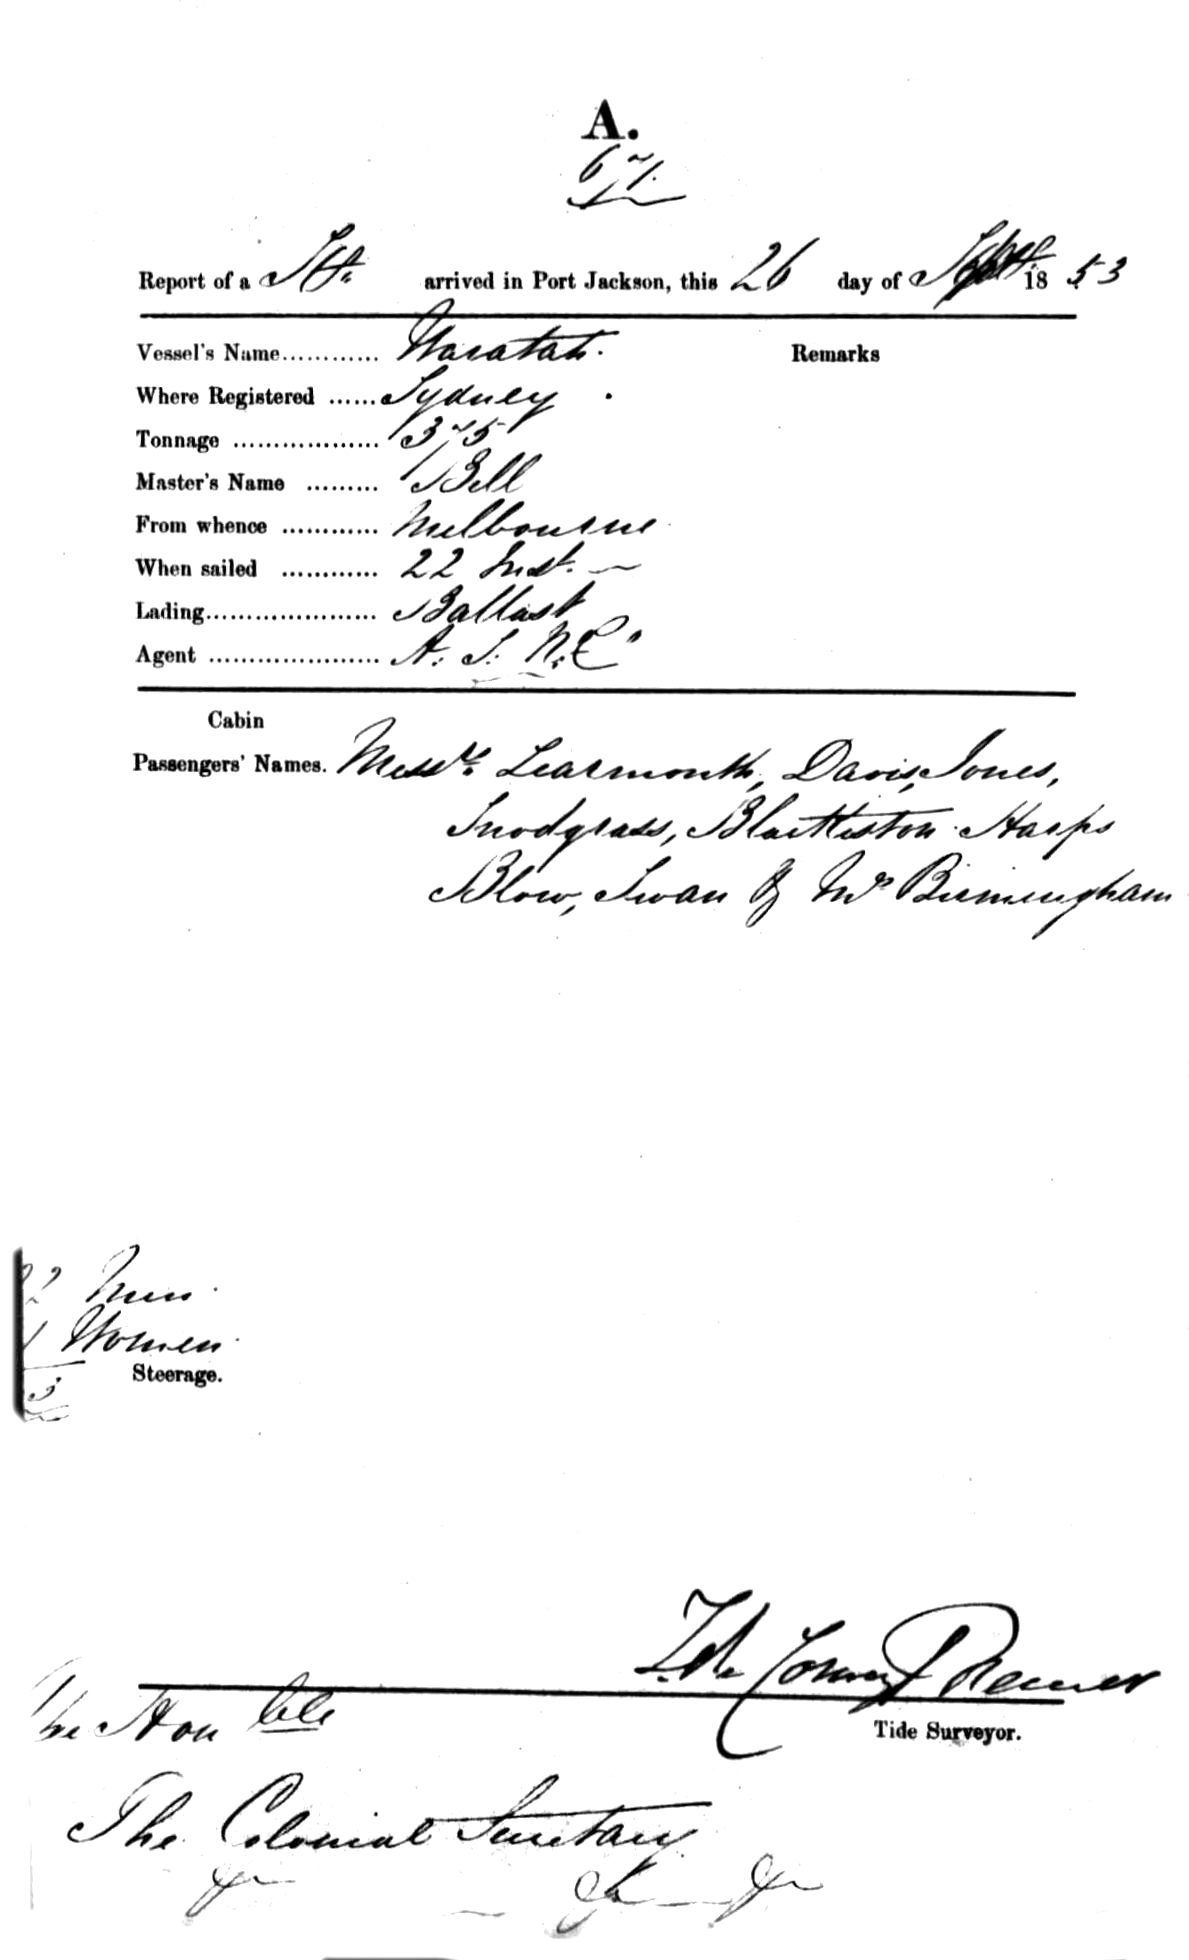 A.
67.
Report of a St. arrived in Port Jackson, this 26 day of Sept 18 53
Vessel's Name............ Waratah. Remarks
Where Registered ...... Sydney
Tonnage .................. 375
Master's Name ......... Bell
From whence ............ Melbourne
When sailed ............ 22 Inst.
Lading..................... Ballast
Agent ..................... A. S. N. Co
Cabin
Passengers' Names. Messrs. Learmonth, Davis, Jones,
Snodgrass, Harps
Blow, Swan & Mrs Birmingham
Men.
Women.
Steerage.
Tide Surveyor.
The Honble
The Colonial Secretary